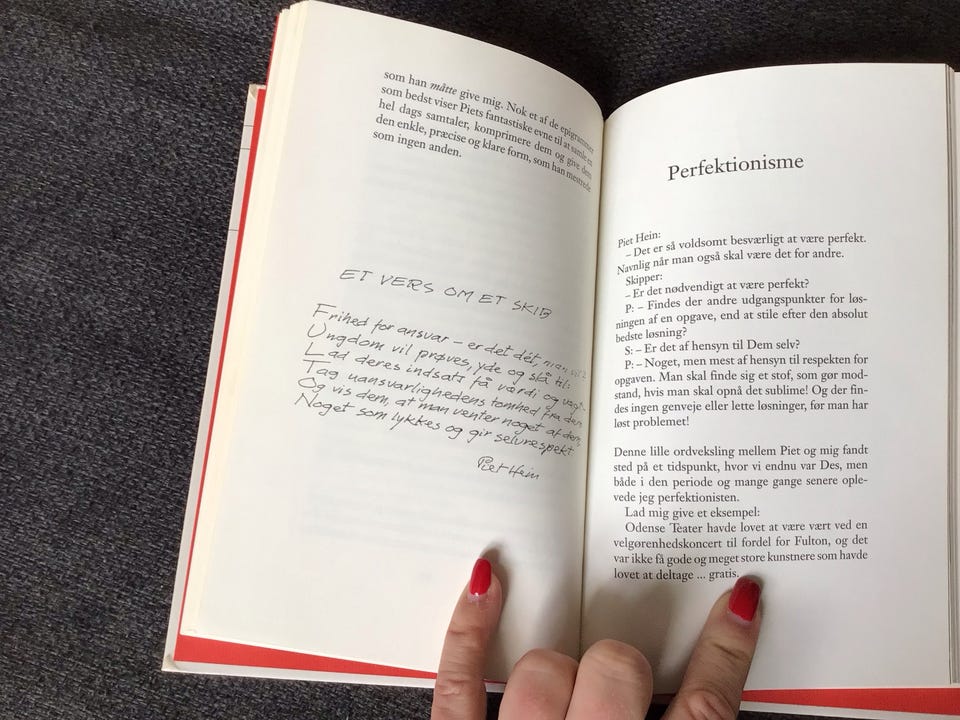 som han måtte give mig. Nok et af de epigrammer
som bedst viser Piets fantastiske evne til at samle en
hel dags samtaler, komprimere dem og give dem
den enkle, præcise og klare form, som han mestrede
som ingen anden.
ET VERS OM ET SKIB
Frihed for ansvar – er det dét, man vil?
Ungdom vil prøves, yde og slå til:
Lad deres indsats få værdi og vægt.
Tag uansvarlighedens tomhed fra dem
Og vis dem, at man venter noget af dem,
Noget som lykkes og gir selvrespekt.
Piet Hein
Perfektionisme
Piet Hein:
– Det er så voldsomt besværligt at være perfekt.
Navnlig når man også skal være det for andre.
Skipper:
– Er det nødvendigt at være perfekt?
P: – Findes der andre udgangspunkter for løs-
ningen af en opgave, end at stile efter den absolut
bedste løsning?
S: – Er det af hensyn til Dem selv?
P: – Noget, men mest af hensyn til respekten for
opgaven. Man skal finde sig et stof, som gør mod-
stand, hvis man skal opnå det sublime! Og der fin-
des ingen genveje eller lette løsninger, før man har
løst problemet!
Denne lille ordveksling mellem Piet og mig fandt
sted på et tidspunkt, hvor vi endnu var Des, men
både i den periode og mange gange senere ople-
vede jeg perfektionisten.
Lad mig give et eksempel:
Odense Teater havde lovet at være vært ved en
velgørenhedskoncert til fordel for Fulton, og det
var ikke få gode og meget store kunstnere som havde
lovet at deltage ... gratis.